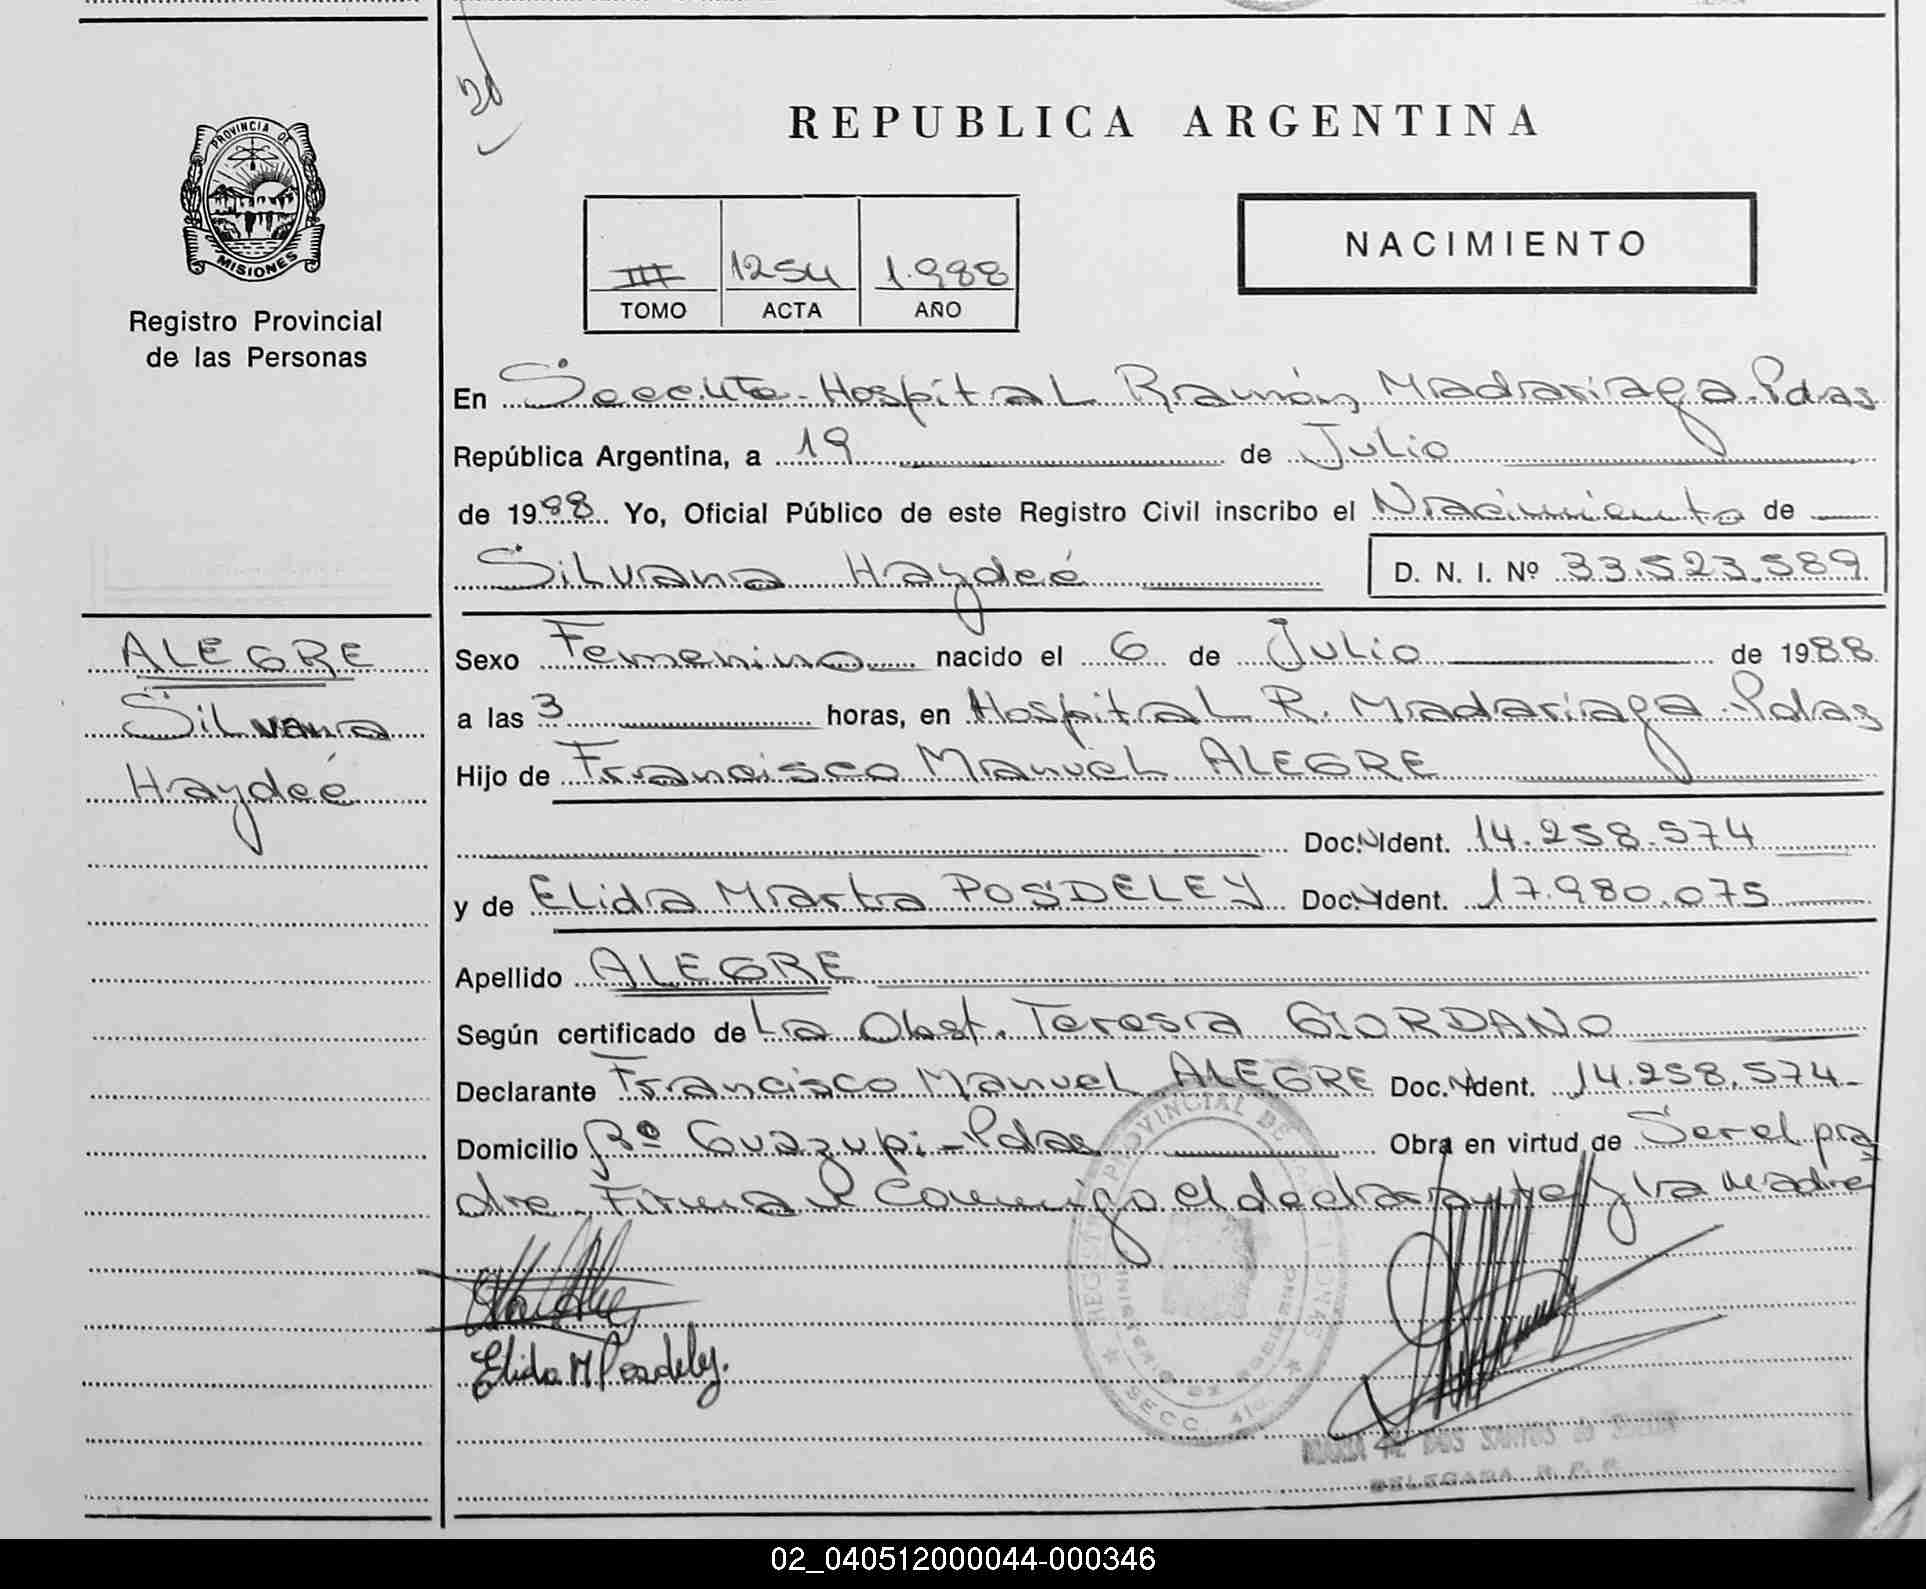 20
REPUBLICA ARGENTINA
PROVINCIA DE
MISIONES
Registro Provincial
de las Personas
III 1254 1.988
TOMO ACTA AÑO
NACIMIENTO
En Secc.4ta-Hospital Ramón Madariaga-Pdas
República Argentina, a 19 de Julio
de 1988 Yo, Oficial Público de este Registro Civil inscribo el Nacimiento de
Silvana Haydeé
D. N. I. Nº 33.523.589
ALEGRE
Silvana
Haydeé
Sexo Femenino nacido el 6 de Julio de 1988
a las 3 horas, en Hospital R. Madariaga-Pdas
Hijo de Francisco Manuel ALEGRE
Doc.N.Ident. 14.258.574
y de Elida Marta POSDELEY Doc.N.Ident. 17.980.075
Apellido ALEGRE
Según certificado de La Obst. Teresa GIORDANO
Declarante Francisco Manuel ALEGRE Doc.N.Ident. 14.258.574-
Domicilio Bº Guazupi-Pdas Obra en virtud de Ser el pa
dre-Firman Conmigo el declarante y la Madre
Elida M Posdeley.
REGISTRO PROVINCIAL DE LAS PERSONAS
MINISTERIO DE GOBIERNO
SECC. 4ta
DELEGADA R.P.P.
02_040512000044-000346